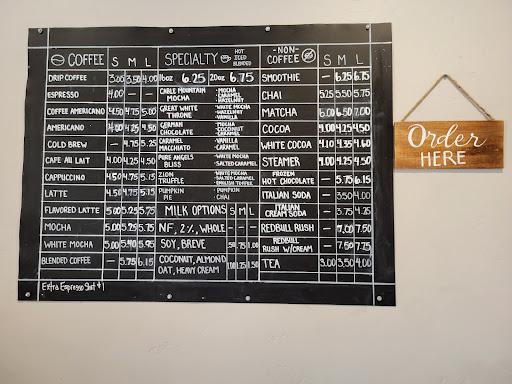 COFFEE S M L
DRIP COFFEE 3.00 3.50 4.00
ESPRESSO 4.00 — —
COFFEE AMERICANO 4.50 4.75 5.00
AMERICANO 4.00 4.25 4.50
COLD BREW — 4.75 5.25
CAFE AU LAIT 4.00 4.25 4.75
CAPPUCCINO 4.50 4.75 5.15
LATTE 4.50 4.75 5.15
FLAVORED LATTE 5.00 5.25 5.75
MOCHA 5.00 5.25 5.75
WHITE MOCHA 5.00 5.40 5.95
BLENDED COFFEE — 5.75 6.15
Extra Espresso Shot $1
SPECIALTY HOT ICED BLENDED
16oz 6.25 20oz 6.75
CABLE MOUNTAIN MOCHA
· MOCHA
· CARAMEL
· HAZELNUT
GREAT WHITE THRONE
· WHITE MOCHA
· HAZELNUT
· VANILLA
GERMAN CHOCOLATE
· MOCHA
· COCONUT
· CARAMEL
CARAMEL MACCHIATO
· VANILLA
· CARAMEL
PURE ANGELS BLISS
· WHITE MOCHA
· SALTED CARAMEL
ZION TRUFFLE
· WHITE MOCHA
· SALTED CARAMEL
· ENGLISH TOFFEE
PUMPKIN PIE
· PUMPKIN
· CHAI
MILK OPTIONS S M L
NF, 2%, WHOLE — — —
SOY, BREVE .50 .75 1.00
COCONUT, ALMOND
OAT, HEAVY CREAM 1.00 1.25 1.50
-NON-
COFFEE S M L
SMOOTHIE — 6.25 6.75
CHAI 5.25 5.50 5.75
MATCHA 6.00 6.50 7.00
COCOA 4.00 4.25 4.50
WHITE COCOA 4.10 4.35 4.60
STEAMER 4.00 4.25 4.50
FROZEN
HOT CHOCOLATE — 5.75 6.15
ITALIAN SODA 3.50 4.00
ITALIAN
CREAM SODA — 3.75 4.25
REDBULL RUSH — 7.00 7.50
REDBULL
RUSH W/CREAM — 7.50 7.75
TEA 3.00 3.50 4.00
Order
HERE